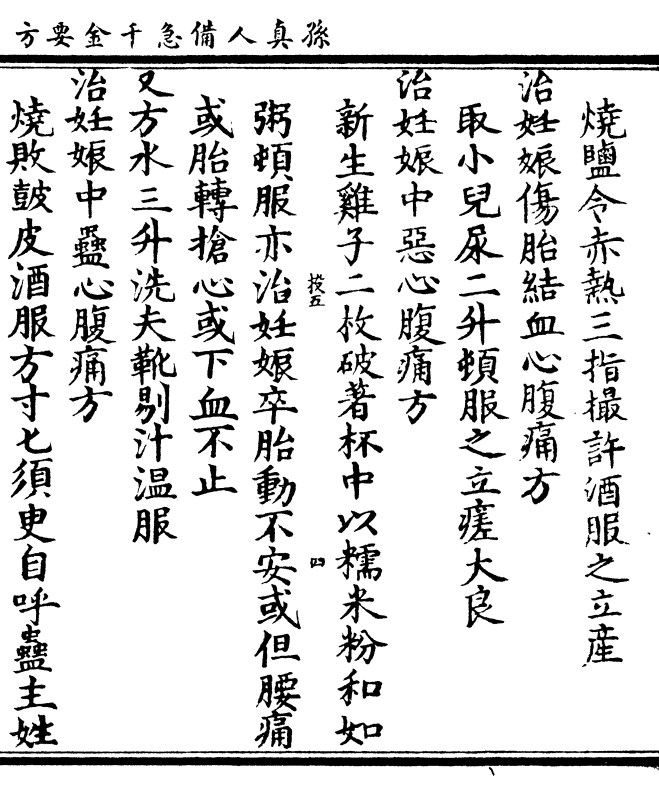 孫真人備急千金要方
燒鹽令赤熱三指撮許酒服之立產
治妊娠傷胎結血心腹痛方
取小兒尿二升頓服之立瘥大良
治妊娠中惡心腹痛方
新生雞子二枚破著杯中以糯米粉和如
投五
四
粥頓服亦治妊娠卒胎動不安或但腰痛
或胎轉搶心或下血不止
又方水三升洗夫靴剔汁温服
治妊娠中蠱心腹痛方
燒敗鼓皮酒服方寸匕須臾自呼蠱主姓